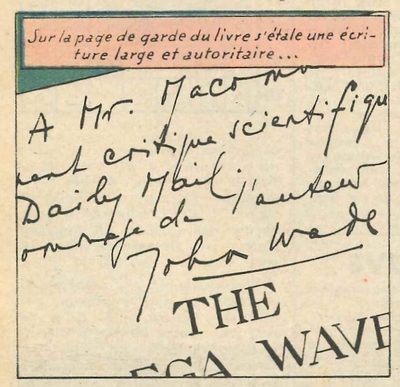 Sur la page de garde du livre s'étale une écri-
ture large et autoritaire...
A Mr. Macom
nent critique scientifiqu
Daily Mail, l'auteur
ommage de
John Wade
THE
EGA WAVE